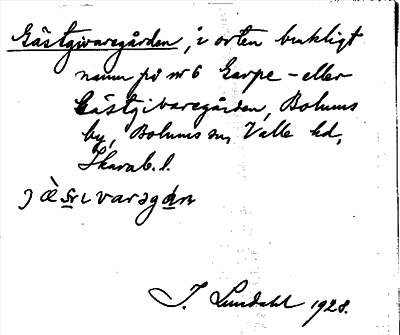 Gästgivaregården, i orten brukligt
namn på nr 6 Garpe- eller
Gästgivaregården, Bolums
by, Bolums sn, Valle hd,
Skarab. l.
J. Lundahl 1928.